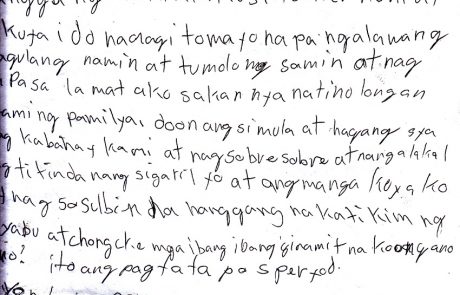 Kuya i do nanagi tomayo na pangalawang
agulang namin at tumolong samin at nag
Pasa lamat ako sakan nya natino longan
aming pamilya, doon ang simula at hagang sya
g kabahay kami at nagsobresobre at nangalakal
gtitinda nang sigarilyo at angmanga koya ko
nag sosulbin na hanggang nakatikim ng
at ibang ibang ginamit na
ko? ito ang pagtata pos peryod.